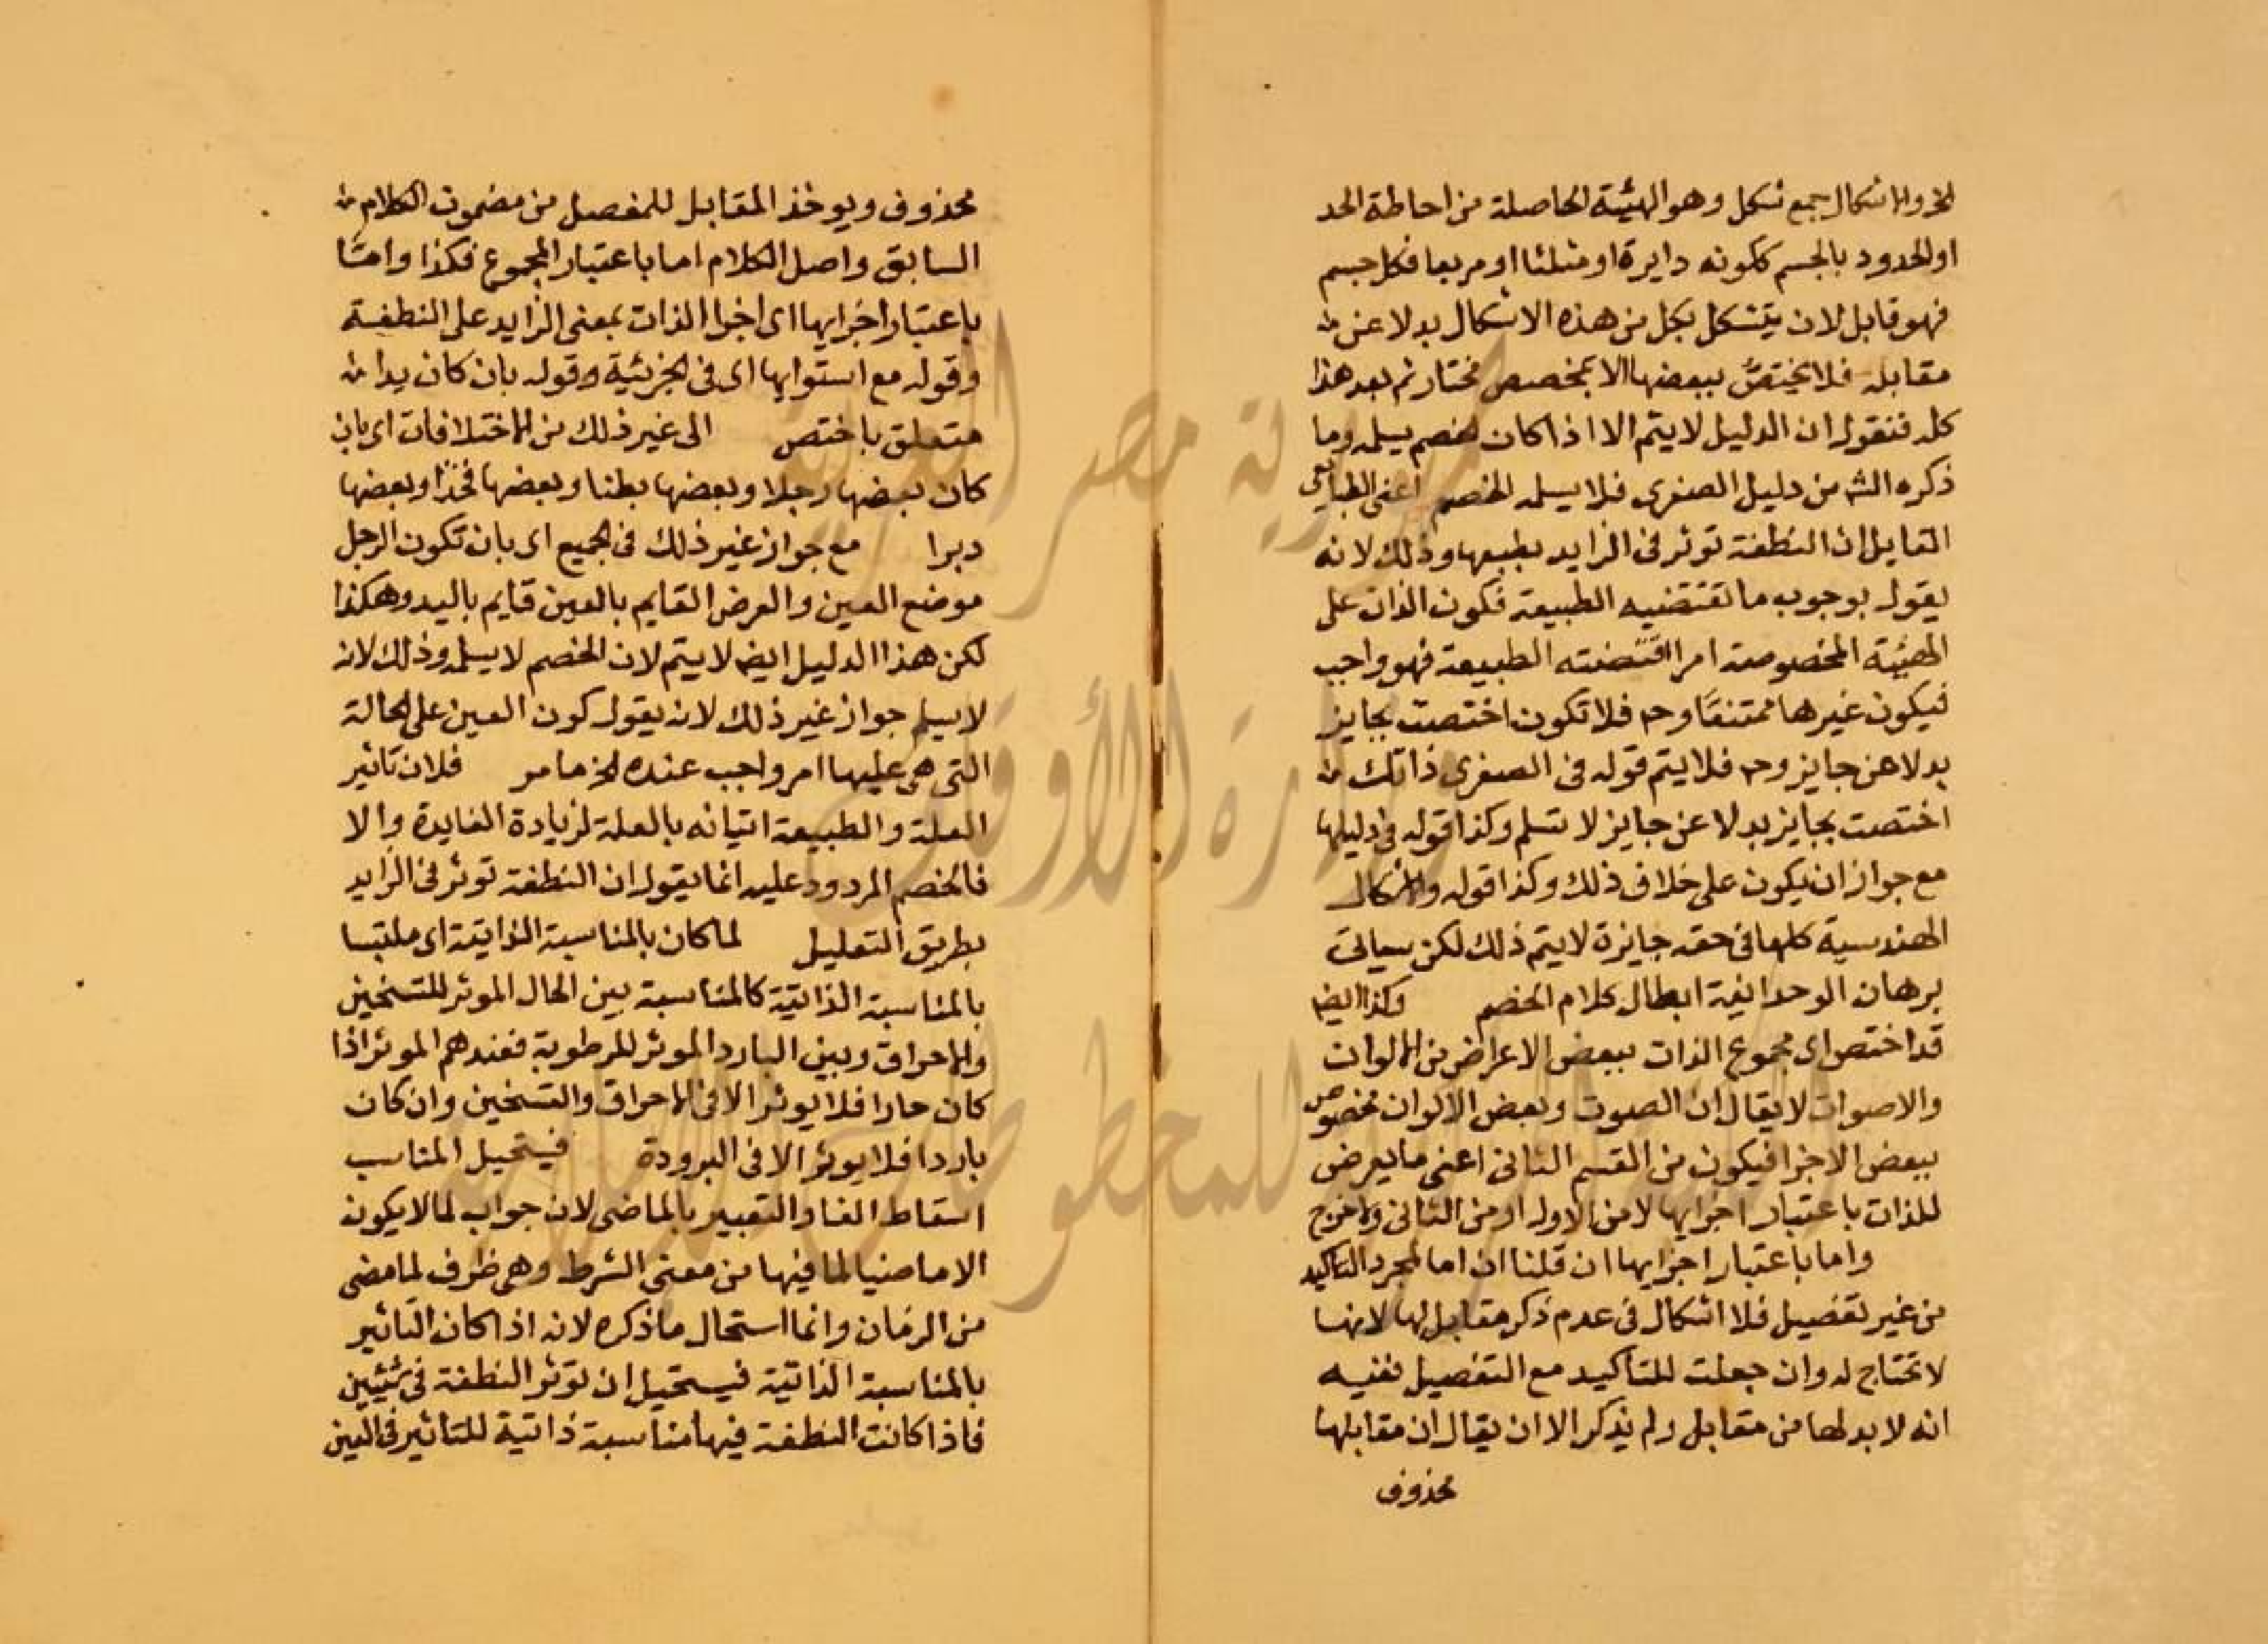 الخ والاشكال جمع شكل وهو الهيئة الحاصلة من احاطة الحد
او الحدود بالجسم ككونه دايرة او مثلثا او مربعا فكل جسم
فهو قابل لان يتشكل بكل من هذه الاشكال بدلا عن
مقابله فلا يختص ببعضها الا بمخصص مختار ثم بعد هذا
كله فنقول ان الدليل لا يتم الا اذا كان الخصم يسلمه وما
ذكره الش من دليل الصغرى فلا يسلمه الخصم اعنى الطبايعى
القايل ان النطفة توثر فى الزايد بطبعها وذلك لانه
يقول بوجوب ما تقتضيه الطبيعة فكون الذات على
الهيئة المخصوصة امرا اقتضته الطبيعة فهو واجب
فيكون غيرها ممتنعا وح فلا تكون اختصت بجايز
بدلا عن جايز وح فلا يتم قوله فى الصغرى ذاتك
اختصت بجايز بدلا عن جايز لا تسلم وكذا قوله فى دليلها
مع جواز ان يكون على خلاف ذلك وكذا قوله والاشكال
الهندسية كلها فى حقه جايزة لا يتم ذلك لكن سياتى
برهان الوحدانية ابطال كلام الخصم وكذا ايضا
قد اختص اى مجموع الذات ببعض الاعراض من الالوان
والاصوات لا يقال ان الصوت وبعض الالوان مخصوص
ببعض الاجزا فيكون من القسم الثانى اعنى ما يعرض
للذات باعتبار اجزايها لا من الاول او من الثانى
واما باعتبار اجزايها ان قلنا ان اما لمجرد التاكيد
من غير تفصيل فلا اشكال فى عدم ذكر مقابل لها لانها
لا تحتاج له وان جعلت للتاكيد مع التفصيل ففيه
انه لا بد لها من مقابل ولم يذكر الا ان يقال ان مقابلها
محذوف
محذوف ويوخذ المقابل للمفصل من مضمون الكلام
السابق واصل الكلام اما باعتبار المجموع فكذا واما
باعتبار اجزايها اى اجزا الذات بمعنى الزايد على النطفة
وقوله مع استوايها اى فى الجزئية وقوله بان كان يدا
متعلق باختص الى غير ذلك من الاختلافات اى بان
كان بعضها رجلا وبعضها بطنا وبعضها فخذا وبعضها
دبرا مع جواز غير ذلك فى الجميع اى بان تكون الرجل
موضع العين والعرض القايم بالعين قايم باليد وهكذا
لكن هذا الدليل ايضا لا يتم لان الخصم لا يسلمه وذلك لانه
لا يسلم جواز غير ذلك لانه يقول كون العين على الحالة
التى هى عليها امر واجب عنده الخ ما مر فلان تاثير
العلة والطبيعة اتيانه بالعلة لزيادة الفايدة والا
فالخصم المردود عليه انما يقول ان النطفة توثر فى الزايد
بطريق التعليل لما كان بالمناسبة الذاتية اى ملتبسا
بالمناسبة الذاتية كالمناسبة بين الحال الموثر للتسخين
والاحراق وبين البارد الموثر للرطوبة فعندهم الموثر اذا
كان حارا فلا يوثر الا فى الاحراق والتسخين وان كان
باردا فلا يوثر الا فى البرودة فيستحيل المناسب
اسقاط الفا والتعبير بالماضى لان جواب لما لا يكون
الا ماضيا لما فيها من معنى الشرط وهى ظرف لما مضى
من الزمان وانما استحال ما ذكره لانه اذا كان التاثير
بالمناسبة الذاتية فيستحيل ان توثر النطفة فى شيئين
فاذا كانت النطفة فيها مناسبة ذاتية للتاثير فى العين
جمهورية مصر العربية
وزارة الأوقاف